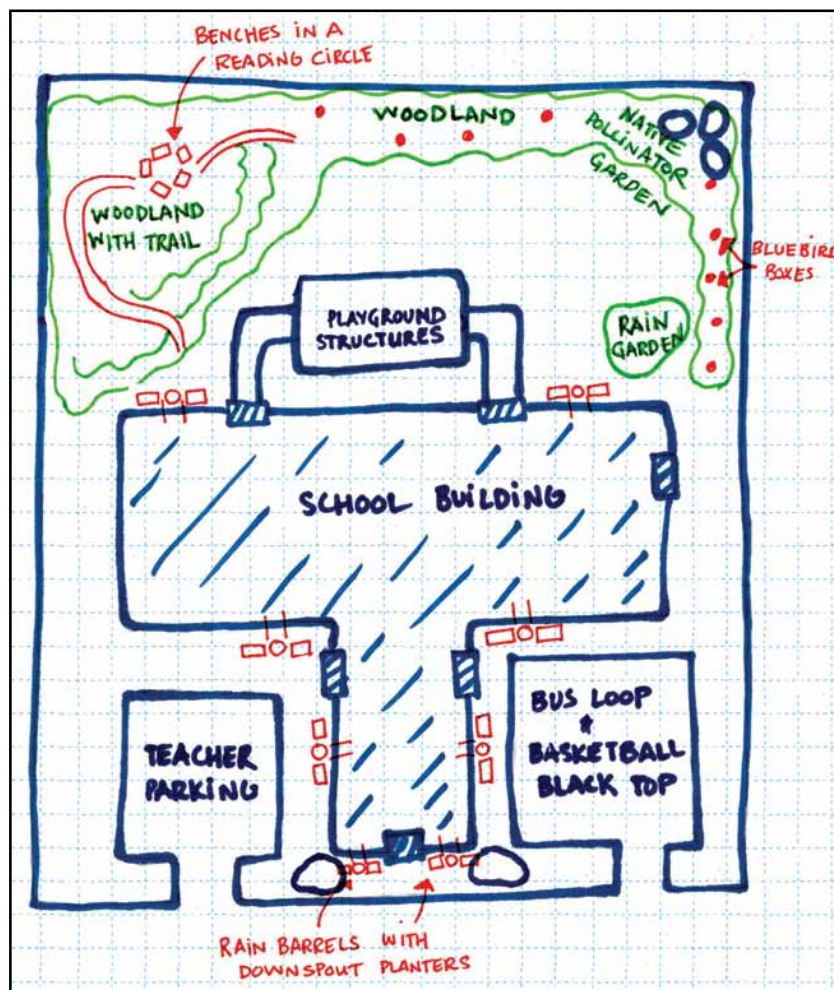 BENCHES IN A
READING CIRCLE
WOODLAND
NATIVE
POLLINATOR
GARDEN
WOODLAND
WITH TRAIL
BLUEBIRD
BOXES
PLAYGROUND
STRUCTURES
RAIN
GARDEN
SCHOOL BUILDING
TEACHER
PARKING
BUS LOOP
+
BASKETBALL
BLACK TOP
RAIN BARRELS WITH
DOWNSPOUT PLANTERS